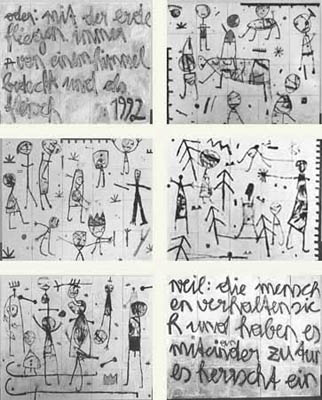 oder: mit der erde
fliegen immer
+ von einem himmel
und als
1992
weil: die mensch
en verhalten sic
h und haben es
zu tun
es herrscht ein